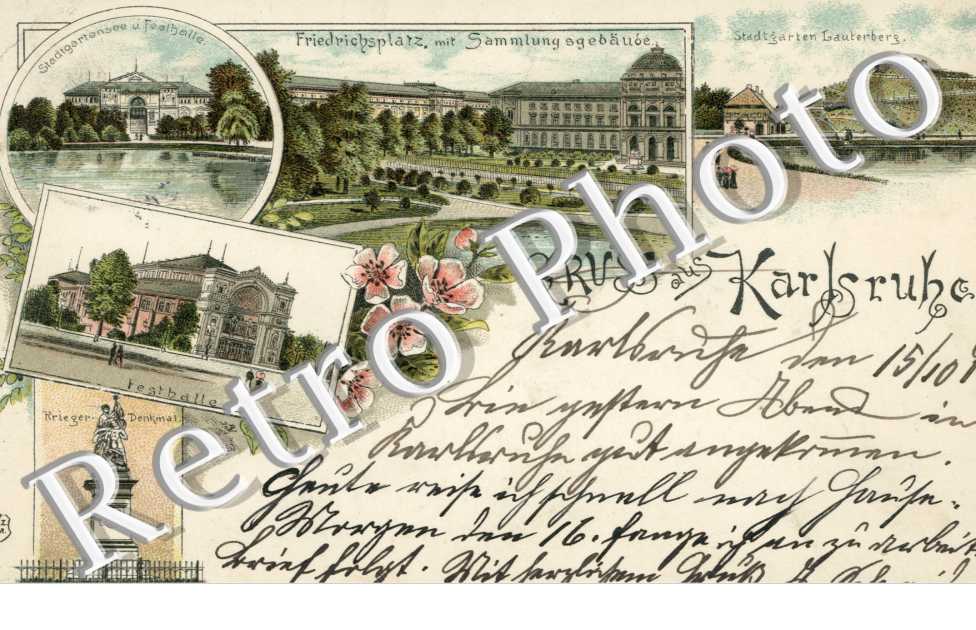 Stadtgartensee u. Festhalle.
Friedrichsplatz, mit Sammlungsgebäude.
Stadtgarten Lauterberg.
Gruss aus Karlsruhe.
Festhalle
Krieger-Denkmal.
Karlsruhe den 15/10
Bin gestern Abend in
Karlsruhe gut angekommen.
Heute reise ich schnell nach Hause.
Morgen den 16. fange ich an zu arbeit
Brief folgt. Mit herzlichem Gruß
Retro Photo